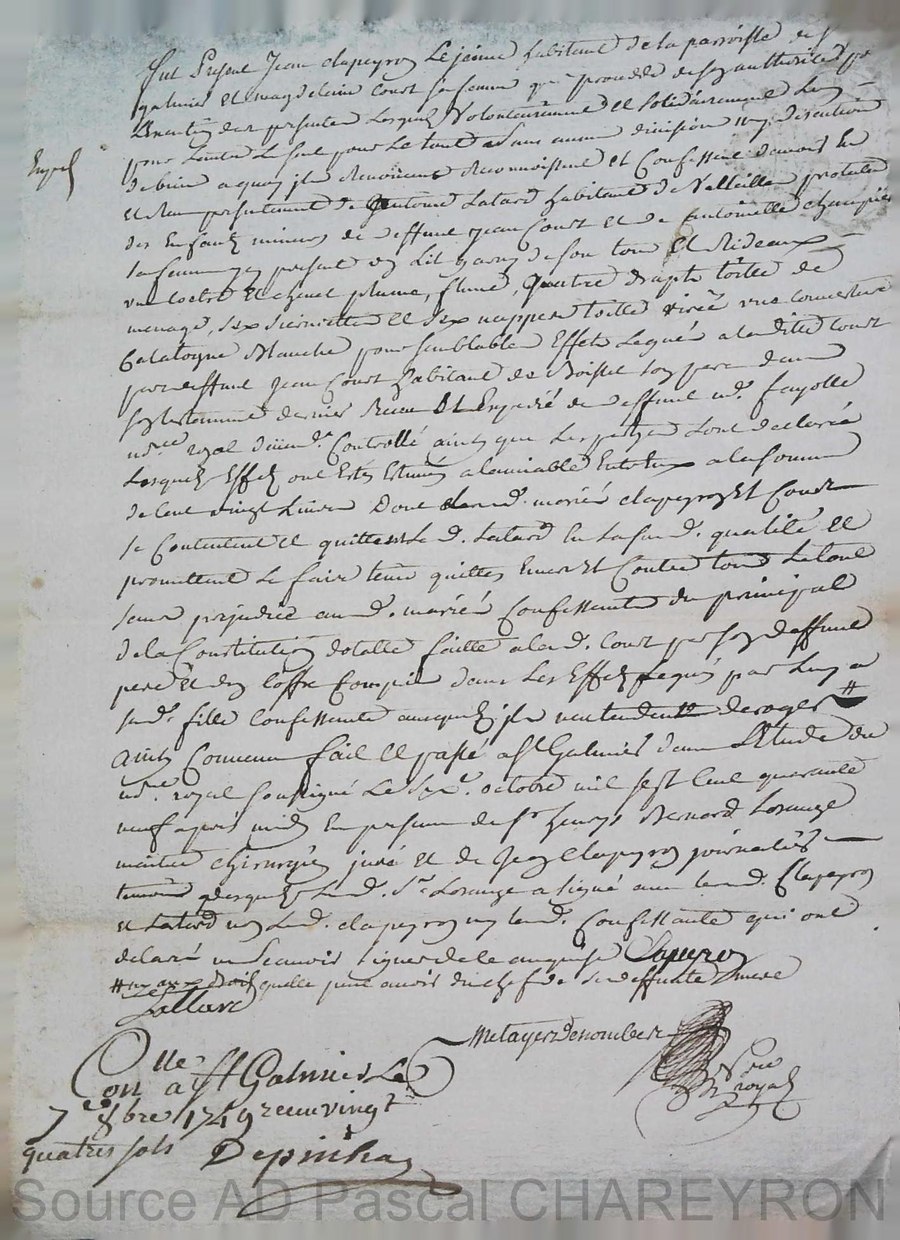 fut Présent Jean Clapeyron Le jeune habitant de la parroisse de S.
galmier et magdeleine Court sa femme qui procedde de son authorité
Lesquels Volontairement et solidairement L'un
pour Lautre Le seul pour Le tout sans aucune division ny discution
de bien a quoy jls Renoncent Reconnoissent et Confessent d'avoir Eu
Exped
et Reçu présentement de Antoine Latard habitant de Velleille
des Enfants mineurs de deffunt Jean Court et de antoinette
sa femme present un Lit garny de son tour et Rideaux
une Coetre et chevet plume, quatre draps toille de
menage, six serviettes et six nappes toille une couverture
Catalogne Blanche pour semblables Effets Legués a laditte Court
par deffunt Jean Court habitant de son pere dans
son testament dernier Receu Et Expedié deffunt me. fayolle
nore. royal Controllé ainsy que Les parties Lont declaré
Lesquels Effets ont Estés Estimés a lamiable Entre Eux a la somme
de Cent vingt Livres Dont Lesd. mariés Clapeyron Et Court
se Contentent et quittent Le d. Latard En sa sus d. qualité et
promettent Le faire tenir quitte Envers Et Contre tous Le tout
sans prejudice aux d. mariés Confessants du principal
de la Constitution dotalle faitte a la d. Court par son deffunt
pere Et du Coffre Compris dans Les Effets Legués par Luy a
sa d. fille Confessante auxquels jls n'entendent deroger #
ainsy Convenu fait et passé a St Galmier dans L'Etude du
nore. royal soussigné Le six e. octobre mil sept Cent quarante
neuf après midy En presence de Sr henry Bernard Lorange
maitre chirurgien juré et de Jean Clapeyron journalier
temoins desquels Led. Sr. Lorange a signé avec Led. Clapeyron
et Latard non Led. clapeyron ny lad. Confessante qui ont
declaré ne Scavoir signer de ce
# ny aux Droits quelle peut avoir du chef de sa deffunte mere
Lattard
Metayer Denombert
nore royal
Con olle a St Galmier Le
7e 8bre 1749 receu vingt
quatres sols Depinhac
Source AD Pascal CHAREYRON